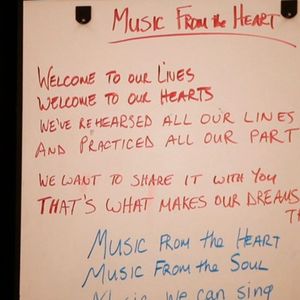 MUSIC FROM the HEART
WELCOME TO OUR LIVES
WELCOME TO OUR HEARTS
WE'VE REHEARSED ALL OUR LINES
AND PRACTICED ALL OUR PART
WE WANT TO SHARE IT WITH YOU
THAT'S WHAT MAKES OUR DREAMS
MUSIC FROM the HEART
MUSIC FROM the SOUL
Music we can sing